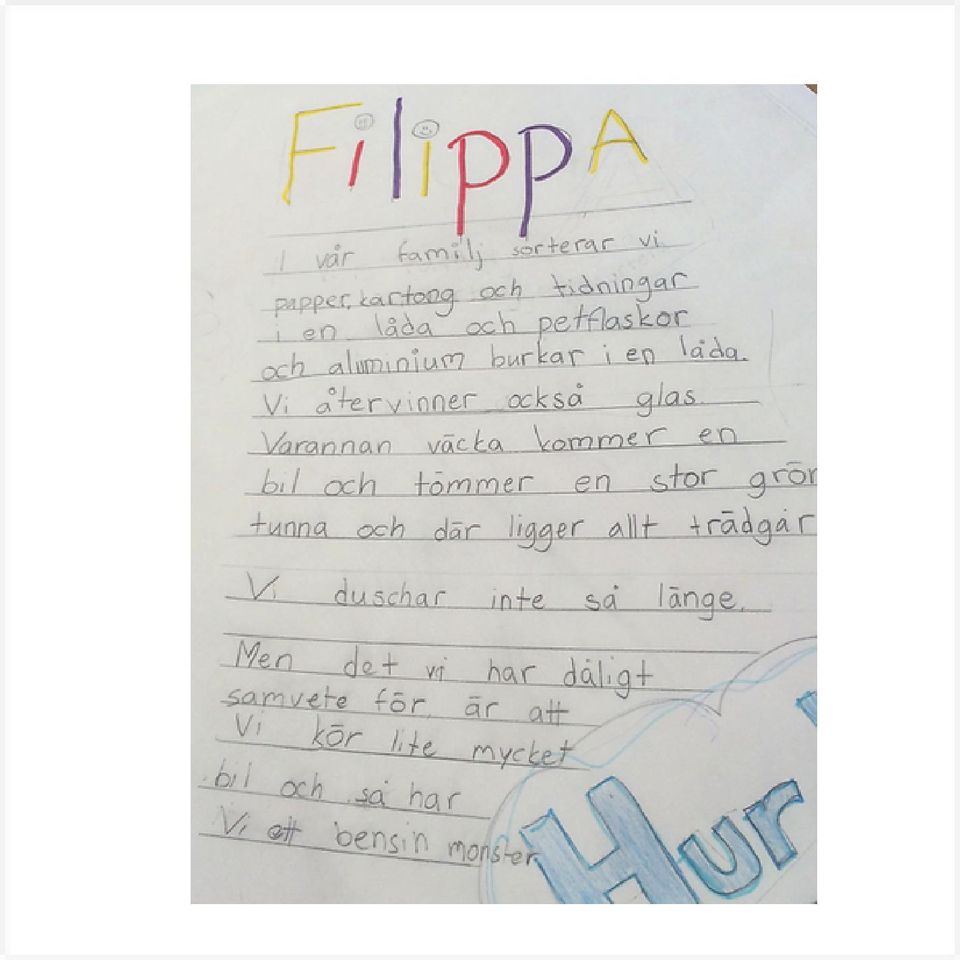 FilippA
I vår familj sorterar vi
papper, kartong och tidningar
i en låda och petflaskor
och aluminium burkar i en låda.
Vi återvinner också glas.
Varannan väcka kommer en
bil och tömmer en stor grön
tunna och där ligger allt trädgår
Vi duschar inte så länge.
Men det vi har dåligt
samvete för, är att
Vi kör lite mycket
bil och så har
Vi ett bensin monster
Hur